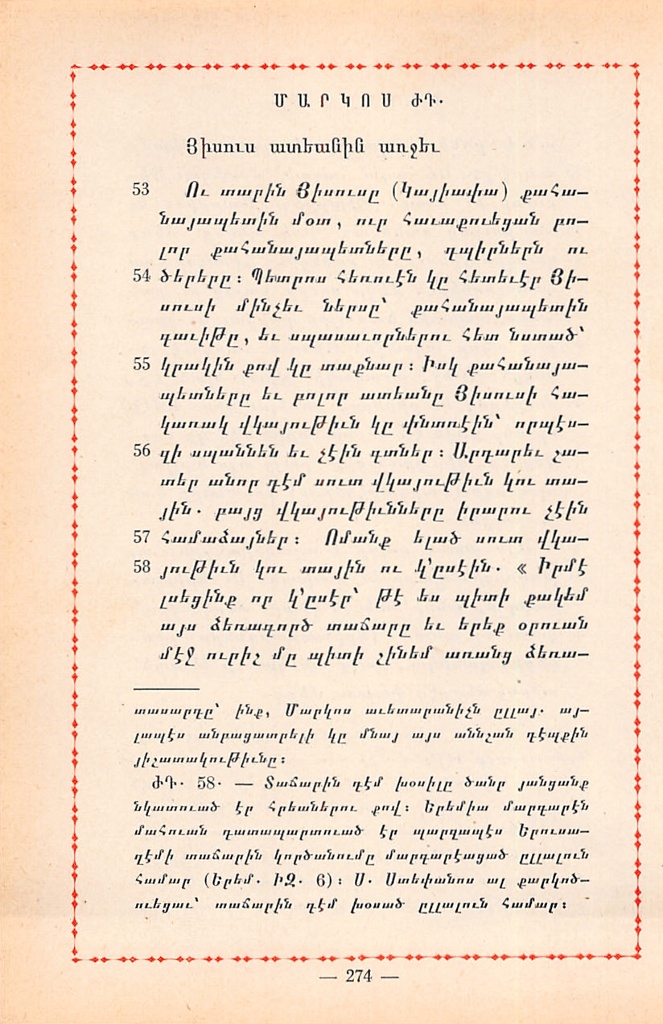 ՄԱՐԿՈՍ ԺԴ.
Յիսուս ատեանին առջեւ
53 Ու տարին Յիսուսը (Կայիափա) քահա–
նայապետին մօտ, ուր հաւաքուեցան բո–
լոր քահանայապետները, դպիրներն ու
54 ծերերը։ Պետրոս հեռուէն կը հետեւէր Յի–
սուսի մինչեւ ներսը՝ քահանայապետին
գաւիթը, եւ սպասաւորներու հետ նստած՝
55 կրակին քով կը տաքնար։ Իսկ քահանայա–
պետները եւ բոլոր ատեանը Յիսուսի հա–
կառակ վկայութիւն կը փնտռէին՝ որպէս–
56 զի սպաննեն եւ չէին գտներ։ Արդարեւ շա–
տեր անոր դէմ սուտ վկայութիւն կու տա–
յին. բայց վկայութիւնները իրարու չէին
57 համաձայներ։ Ոմանք ելած սուտ վկա–
58 յութիւն կու տային ու կ՚ըսէին. «Իրմէ
լսեցինք որ կ՚ըսէր՝ թէ ես պիտի քակեմ
այս ձեռագործ տաճարը եւ երեք օրուան
մէջ ուրիշ մը պիտի շինեմ առանց ձեռա–
տասարդը՝ ինք, Մարկոս աւետարանիչն ըլլայ. այ–
լապէս անբացատրելի կը մնայ այս աննշան դէպքին
յիշատակութիւնը։
ԺԴ. 58. — Տաճարին դէմ խօսիլը ծանր յանցանք
նկատուած էր Հրեաներու քով։ Երեմիա մարգարէն
մահուան դատապարտուած էր պարզապէս Երուսա–
ղէմի տաճարին կործանումը մարգարէացած ըլլալուն
համար (Երեմ. ԻԶ. 6)։ Ս. Ստեփանոս ալ քարկոծ–
ուեցաւ՝ տաճարին դէմ խօսած ըլլալուն համար։
— 274 —